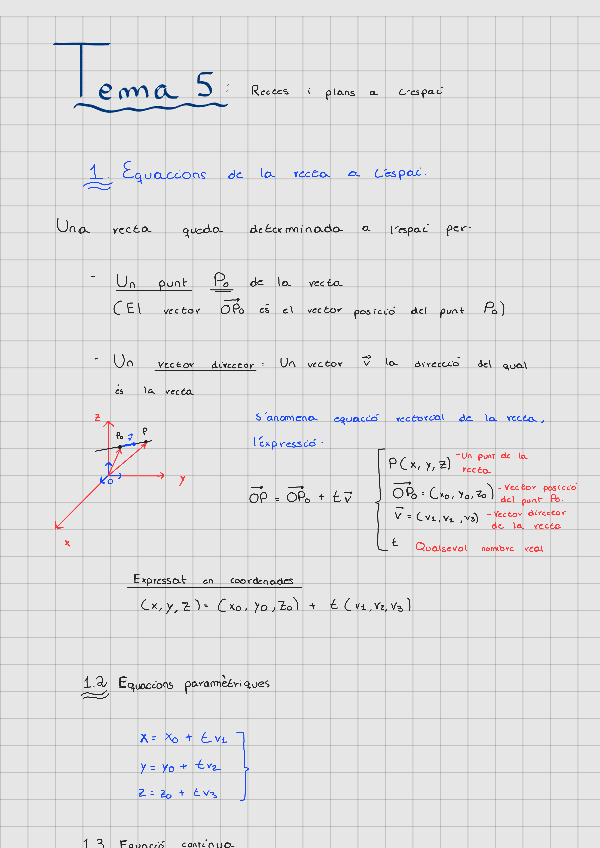 Tema 5: Rectes i plans a l'espai
1. Equacions de la recta a l'espai.
Una recta queda determinada a l'espai per:
- Un punt P₀ de la recta
(El vector OP₀ és el vector posició del punt P₀)
- Un vector director: Un vector v⃗ la direcció del qual
és la recta
S'anomena equació vectorial de la recta,
l'expressió:
z
P₀ v⃗ P
O
y
x
OP⃗ = OP₀⃗ + t v⃗
P(x, y, z) - Un punt de la
recta
OP₀⃗ = (x₀, y₀, z₀) - Vector posició
del punt P₀.
v⃗ = (v₁, v₂, v₃) - Vector director
de la recta
t Qualsevol nombre real
Expressat en coordenades
(x, y, z) = (x₀, y₀, z₀) + t (v₁, v₂, v₃)
1.2 Equacions paramètriques
x = x₀ + t v₁
y = y₀ + t v₂
z = z₀ + t v₃
1.3 Equació contínua